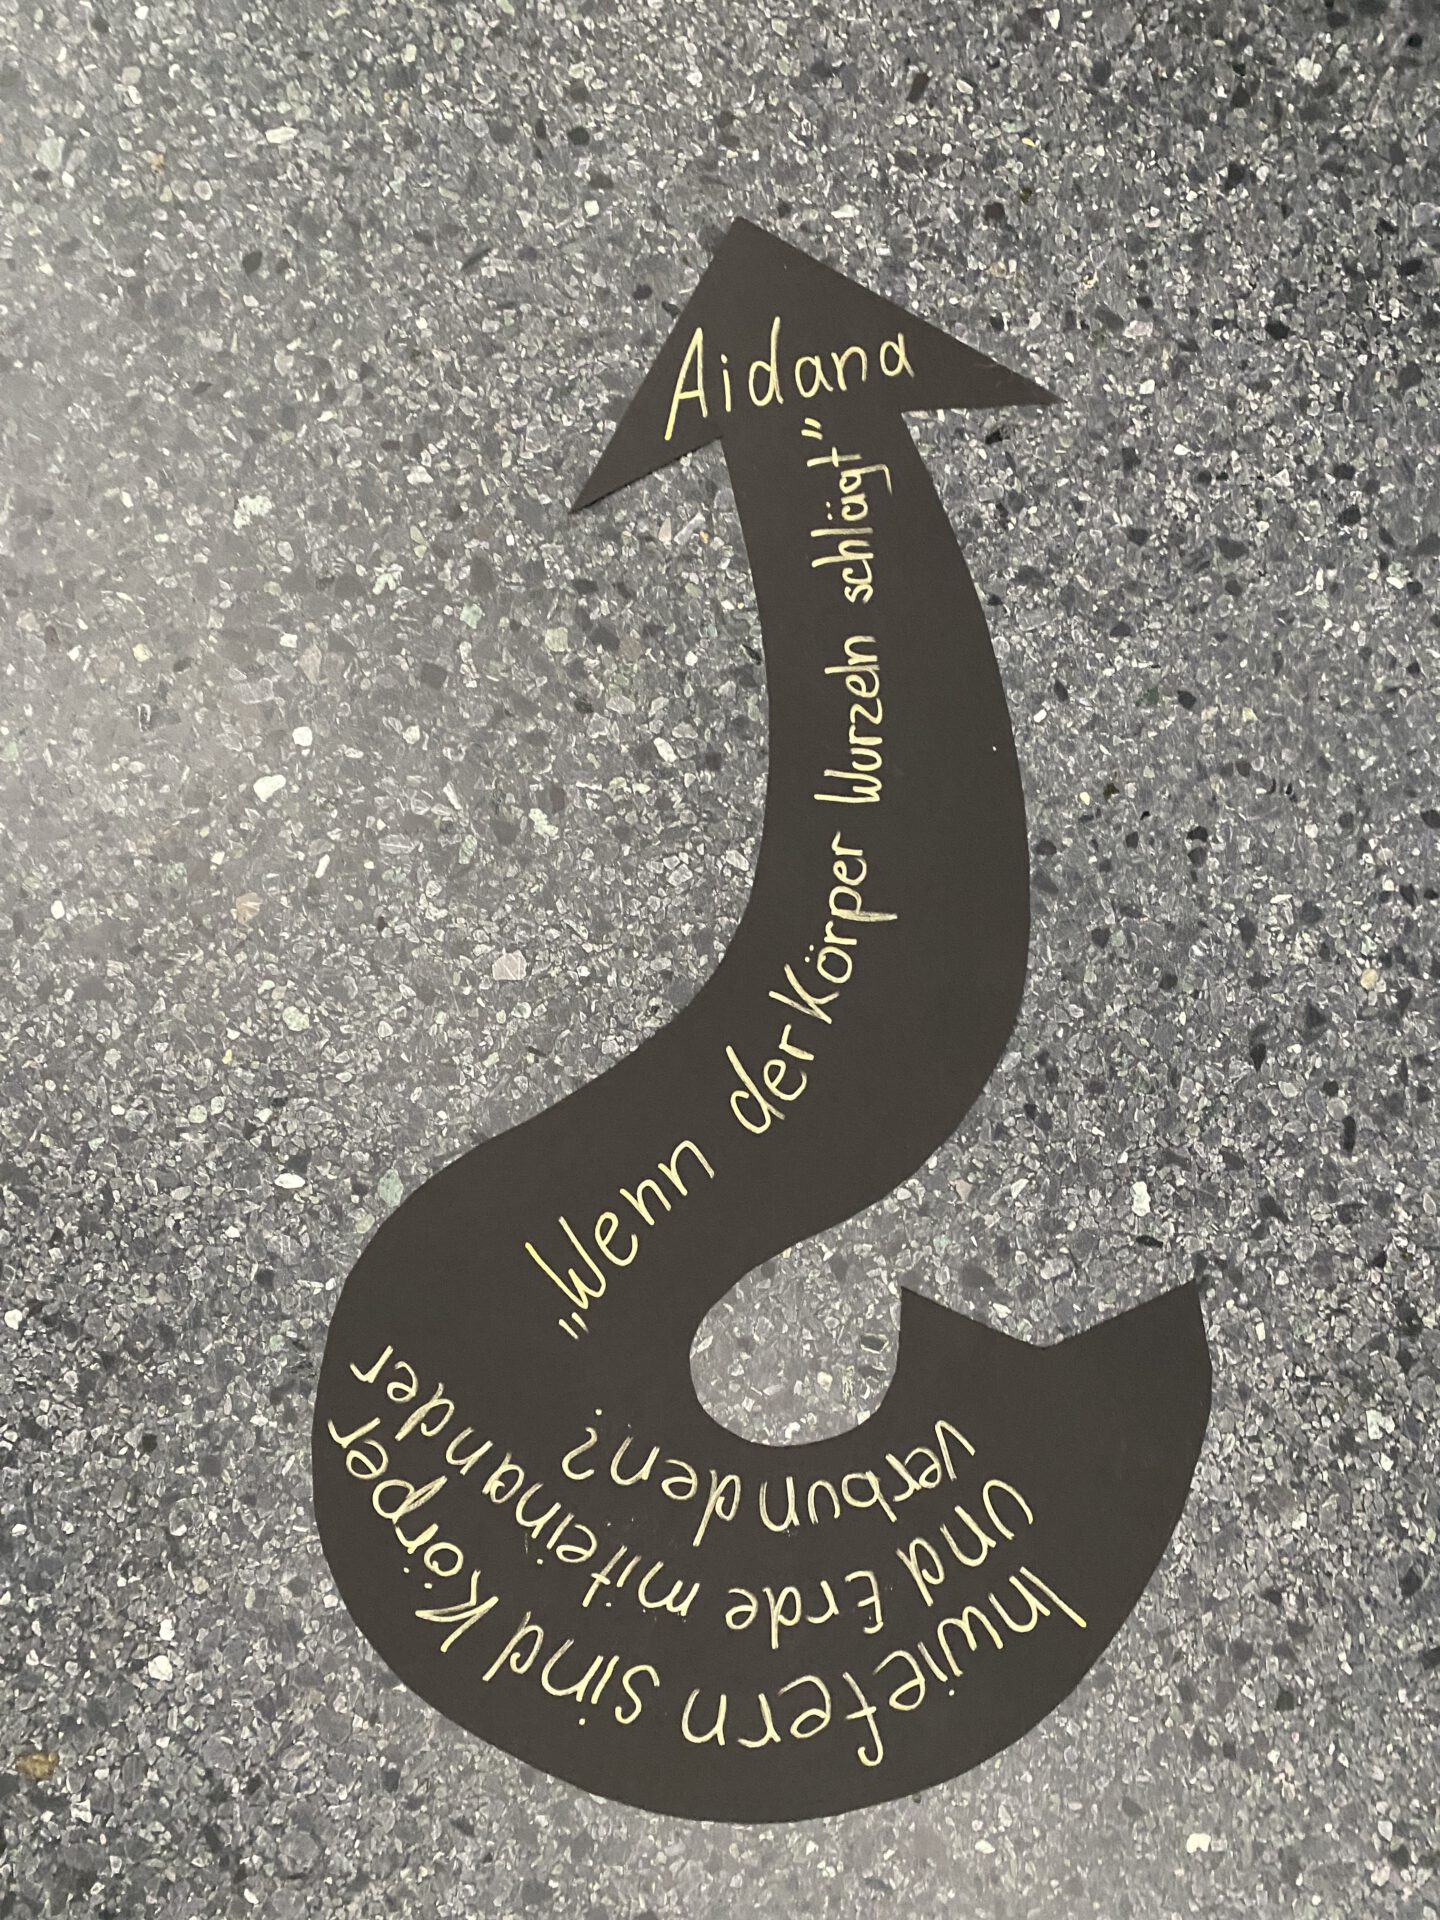 Aidana
„Wenn der Körper Wurzeln schlägt”
Inwiefern sind Körper
und Erde miteinander
verbunden?